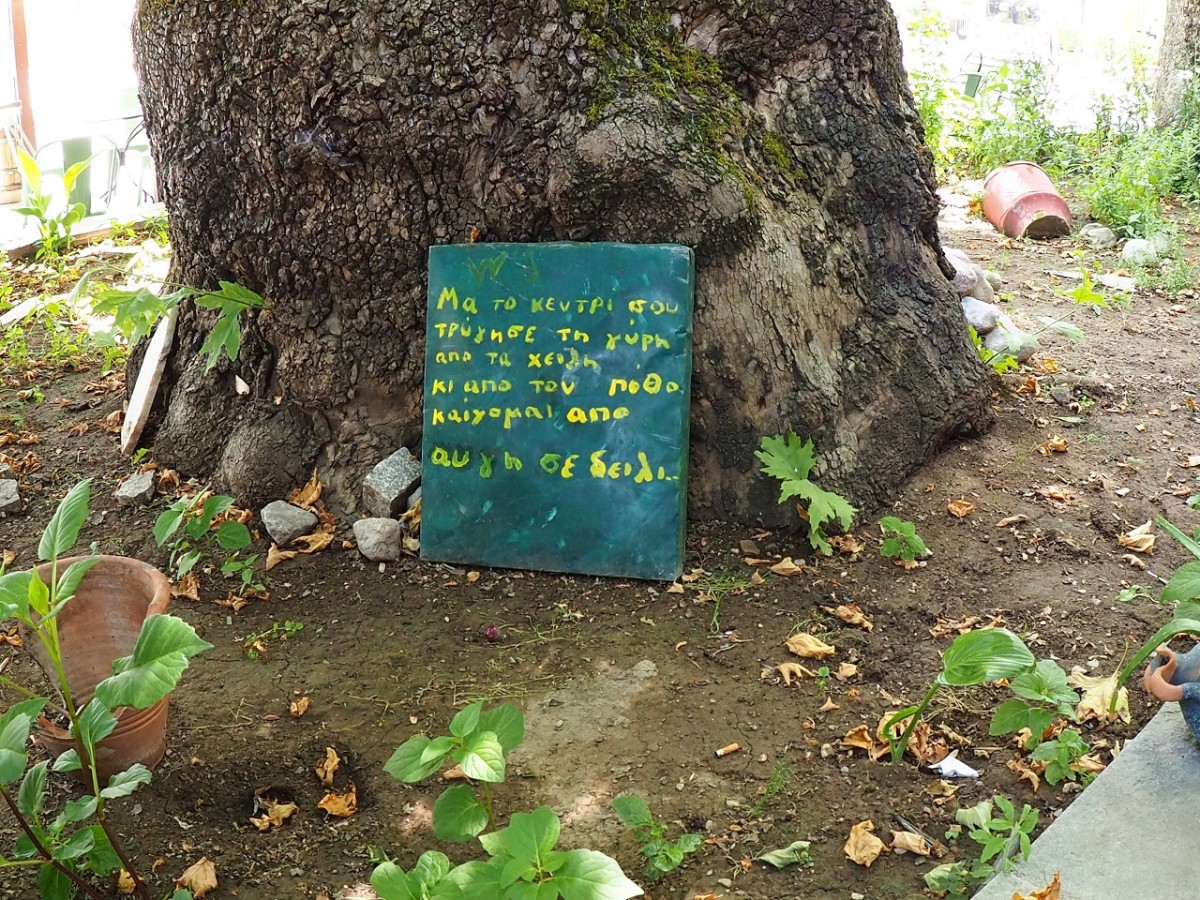 Μα το κεντρι σου
τρύγησε τη γύρη
απο τα χειλη
κι απο τον ποθο
καιγομαι απο
αυγη σε δειλι..